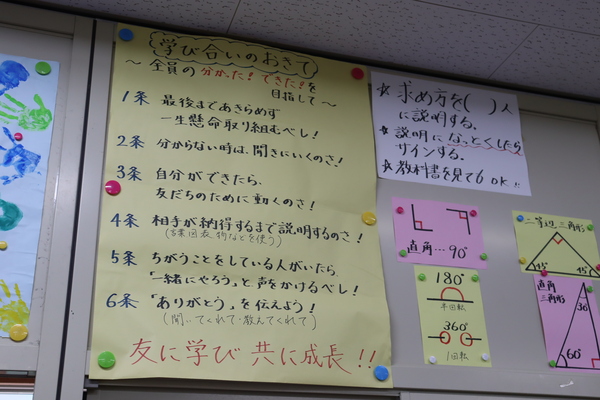 学び合いのおきて
～全員の分かた!できた!を
目指して～
1条 最後まであきらめず
一生懸命取り組むべし!
2条 分からない時は、聞きにいくのさ!
3条 自分ができたら、
友だちのために動くのさ!
4条 相手が納得するまで説明するのさ!
(言葉図表、物などを使う)
5条 ちがうことをしている人がいたら、
「一緒にやろう」と声をかけるべし!
6条 「ありがとう」を伝えよう!
(聞いてくれて・教えてくれて)
友に学び 共に成長!!
☆求め方を( )人
に説明する。
☆説明になっとくしたら
サインする。
☆教科書を見てもOK!!
直角…90°
180°
半回転
360°
1回転
二等辺三角形
45° 45°
直角
三角形
30°
60°